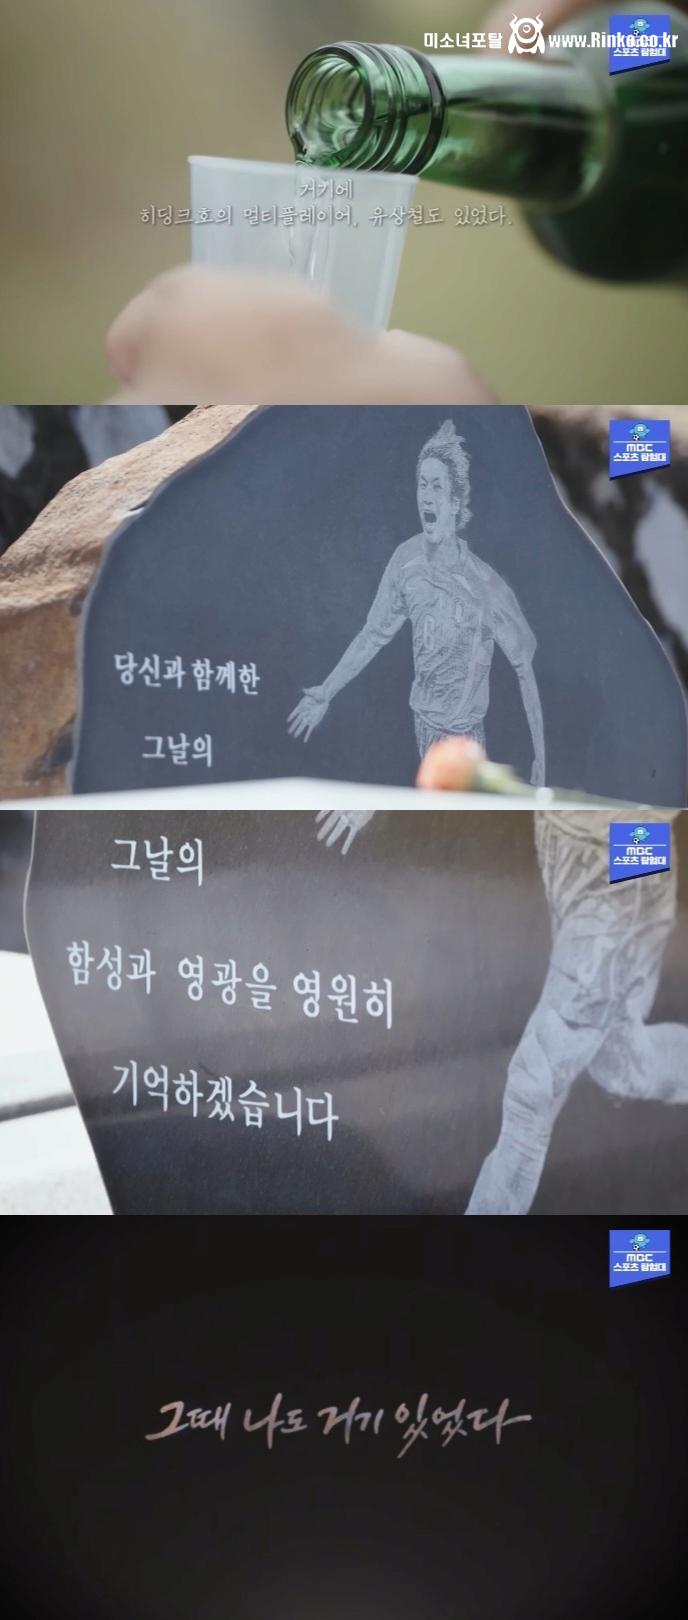 미소녀포탈 www.Rinko.co.kr
스포츠 탐험대
거기에
히딩크호의 멀티플레이어, 유상철도 있었다.
MBC
스포츠 탐험대
당신과 함께한
그날의
MBC
스포츠 탐험대
그날의
함성과 영광을 영원히
기억하겠습니다
MBC
스포츠 탐험대
그때 나도 거기 있었다